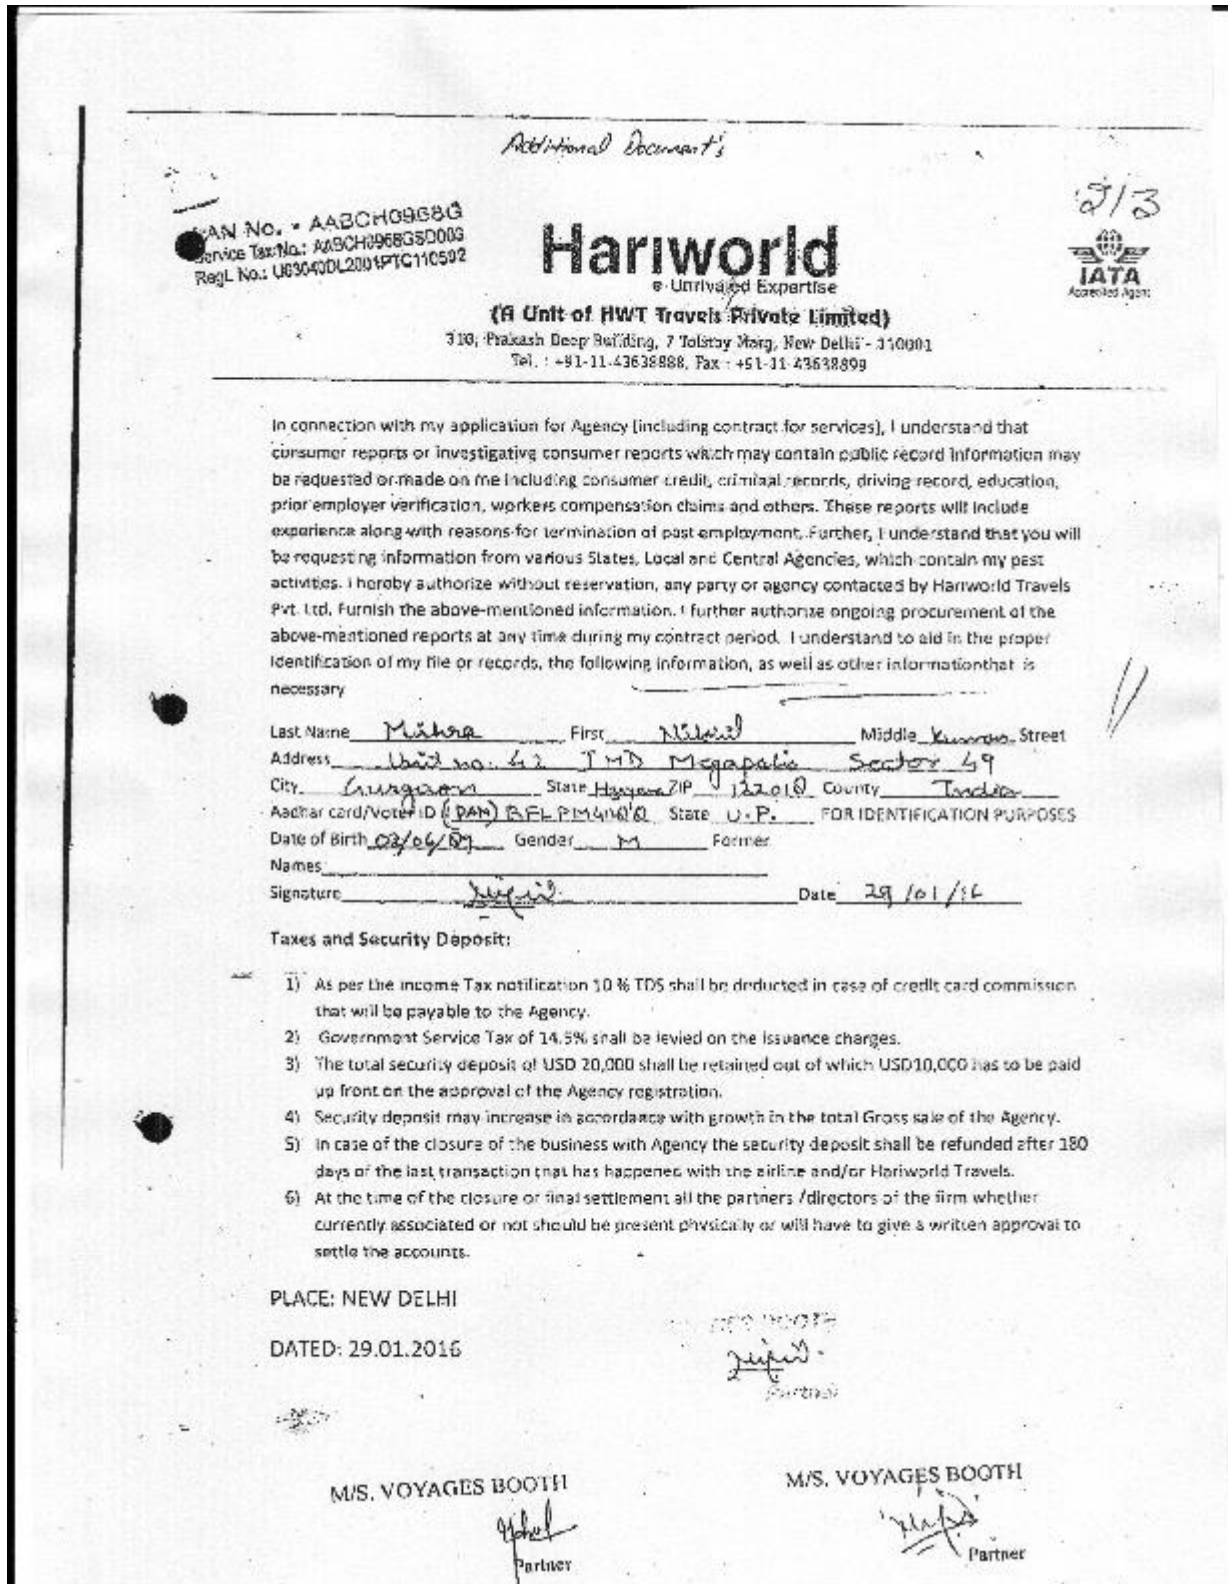 Additional Document's
2/3
PAN No. - AABCH0968G
Service Tax No.: AABCH0968GSD003
Regl. No.: U63040DL2001PTC110502
Hariworld
e-Unrivaled Expertise
IATA
Accredited Agent
(A Unit of HWT Travels Private Limited)
310, Prakash Deep Building, 7 Tolstoy Marg, New Delhi - 110001
Tel. : +91-11-43638888, Fax : +91-11-43638899
In connection with my application for Agency (including contract for services), I understand that
consumer reports or investigative consumer reports which may contain public record information may
be requested or made on me including consumer credit, criminal records, driving record, education,
prior employer verification, workers compensation claims and others. These reports will include
experience along with reasons for termination of past employment. Further, I understand that you will
be requesting information from various States, Local and Central Agencies, which contain my past
activities. I hereby authorize without reservation, any party or agency contacted by Hariworld Travels
Pvt. Ltd. Furnish the above-mentioned information. I further authorize ongoing procurement of the
above-mentioned reports at any time during my contract period. I understand to aid in the proper
identification of my file or records, the following information, as well as other informationthat is
necessary
Last Name First Middle Kumar Street
Address Unit no. 42 JMD Megapolis Sector 49
City Gurgaon State Haryana ZIP 122018 County India
Aadhar card/Voter ID (PAN) State U.P. FOR IDENTIFICATION PURPOSES
Date of Birth Gender M Former
Names
Signature Date 29/01/16
Taxes and Security Deposit:
1) As per the income Tax notification 10 % TDS shall be deducted in case of credit card commission
that will be payable to the Agency.
2) Government Service Tax of 14.5% shall be levied on the issuance charges.
3) The total security deposit of USD 20,000 shall be retained out of which USD10,000 has to be paid
up front on the approval of the Agency registration.
4) Security deposit may increase in accordance with growth in the total Gross sale of the Agency.
5) In case of the closure of the business with Agency the security deposit shall be refunded after 180
days of the last transaction that has happened with the airline and/or Hariworld Travels.
6) At the time of the closure or final settlement all the partners /directors of the firm whether
currently associated or not should be present physically or will have to give a written approval to
settle the accounts.
PLACE: NEW DELHI
DATED: 29.01.2016
Partner
M/S. VOYAGES BOOTH M/S. VOYAGES BOOTH
Partner Partner